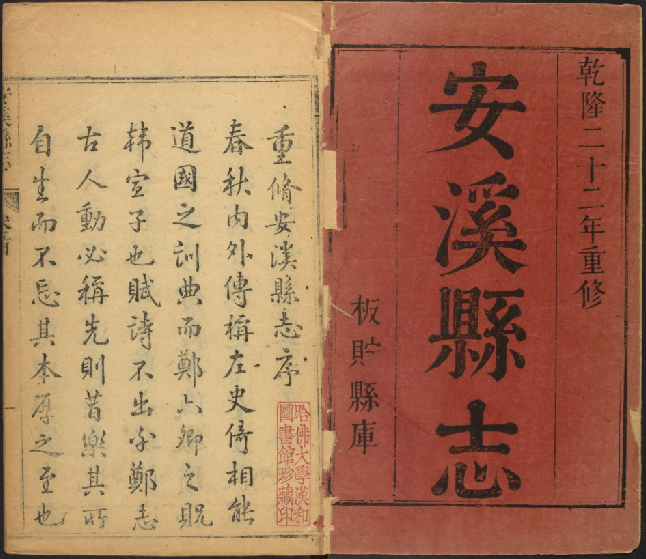 乾隆二十二年重修
安溪縣志
板貯縣庫
重脩安溪縣志序
春秋內外傳稱左史倚相能
道國之訓典而鄭六卿之貺
韓宣子也賦詩不出乎鄭志
古人動必稱先則昔樂其所
自生而不忘其本厚之至也
哈佛大學漢和
圖書館珍藏印